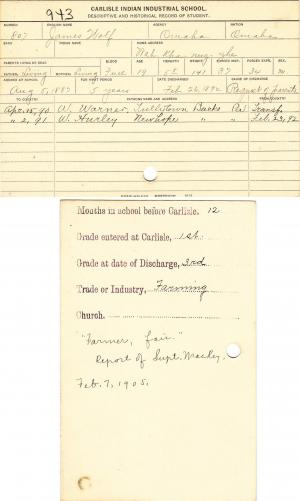 943
CARLISLE INDIAN INDUSTRIAL SCHOOL.
DESCRIPTIVE AND HISTORICAL RECORD OF STUDENT.
NUMBER ENGLISH NAME AGENCY NATION
807 James Wolf Omaha Omaha
BAND INDIAN NAME HOME ADDRESS
PARENTS LIVING OR DEAD BLOOD AGE HEIGHT WEIGHT FORCED INSP. FORCED EXPR. SEX
FATHER, Living MOTHER, Living Full 19 141 37 34 M.
ARRIVED AT SCHOOL FOR WHAT PERIOD DATE DISCHARGED CAUSE OF DISCHARGE
Aug 5, 1887 5 years Feb 26, 1892 Request of parents
TO COUNTRY PATRONS NAME AND ADDRESS FROM COUNTRY
Apr. 15, 90 W. Warner, Tullytown Bucks Pa. Transf.
" 2, 91 W. Hurley Newhope " " Feb. 23, 92
Months in school before Carlisle. 12
Grade entered at Carlisle, 1st
Grade at date of Discharge, 3rd
Trade or Industry, Farming
Church.
"Farmer, fair."
Report of Supt. Mackey,
Feb. 7, 1905.